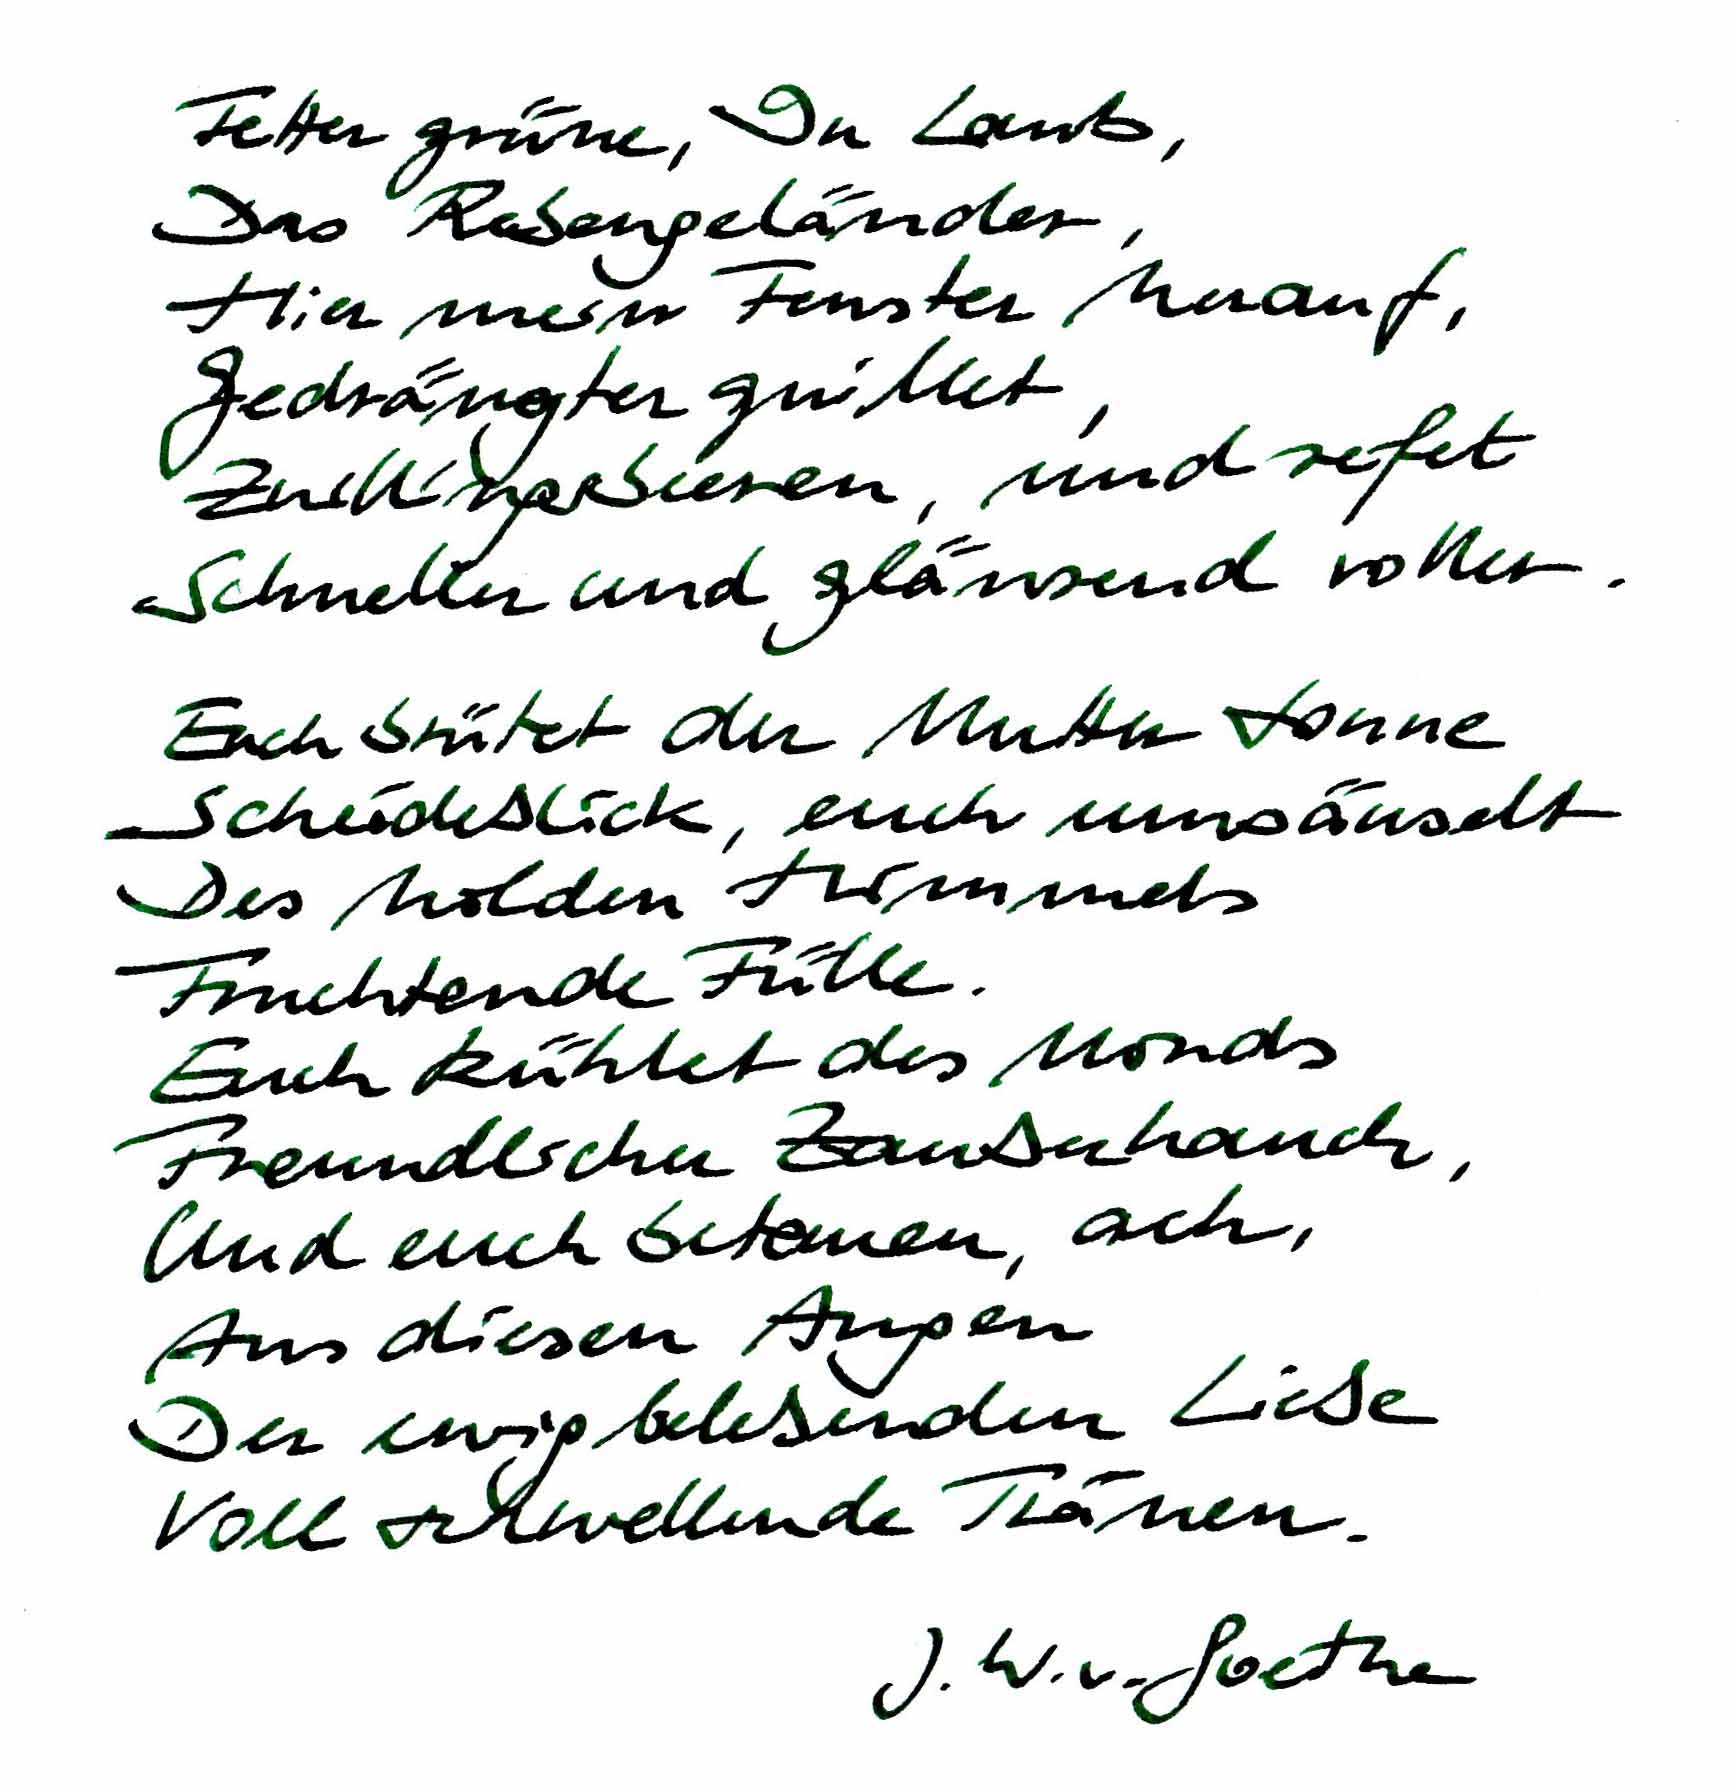 Fetter grüne, Du Laub,
Das Rebengeländer,
Hier mein Fenster herauf,
Gedrängter quillet,
Zwillingsbeeren, und reifet
Schneller und glänzend voller.
Euch brütet der Mutter Sonne
Scheideblick, euch umsäuselt
Des holden Himmels
Fruchtende Fülle.
Euch kühlet des Monds
Freundlicher Zauberhauch,
Und euch betauen, ach,
Aus diesen Augen
Der ewig belebenden Liebe
Voll schwellende Tränen.
J. W. v. Goethe